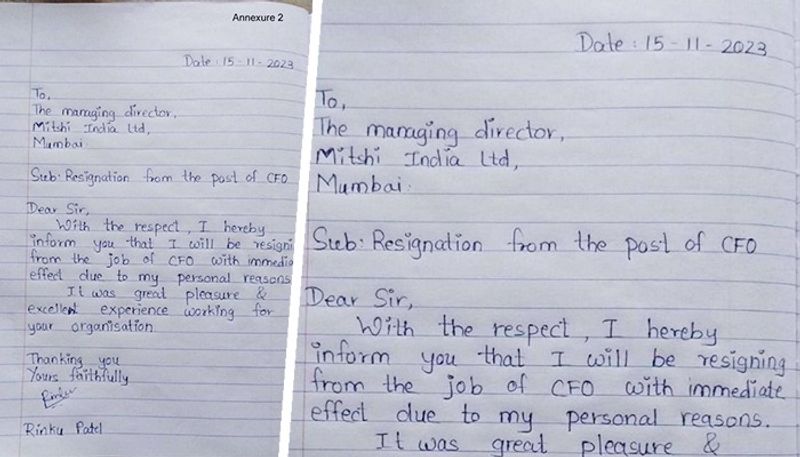 Annexure 2
Date : 15-11-2023
To,
The managing director,
Mitshi India Ltd,
Mumbai.
Sub: Resignation from the post of CFO
Dear Sir,
With the respect, I hereby
inform you that I will be resigni
from the job of CFO with immedia
effect due to my personal reasons
It was great pleasure &
excellent experience working for
your organisation
Thanking you
Yours faithfully
Rinku
Rinku Patel
Date : 15-11-2023
To,
The managing director,
Mitshi India Ltd,
Mumbai.
Sub: Resignation from the post of CFO
Dear Sir,
With the respect, I hereby
inform you that I will be resigning
from the job of CFO with immediate
effect due to my personal reasons.
It was great pleasure &